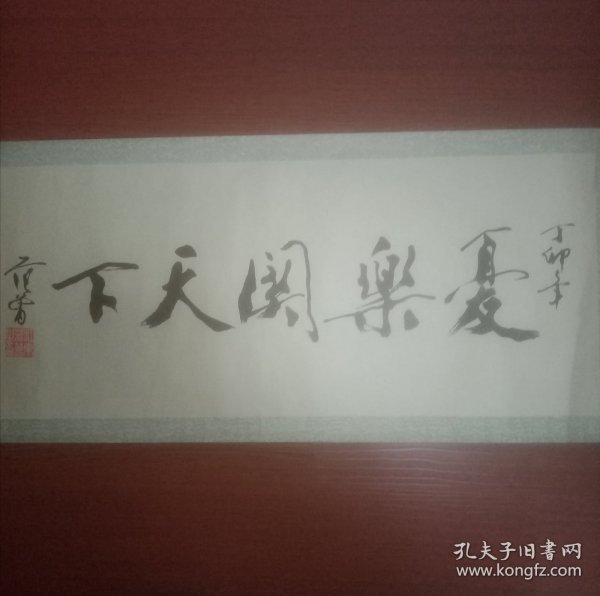 丁卯年
憂樂関天下
范曾
孔夫子旧書网
www.kongfz.com